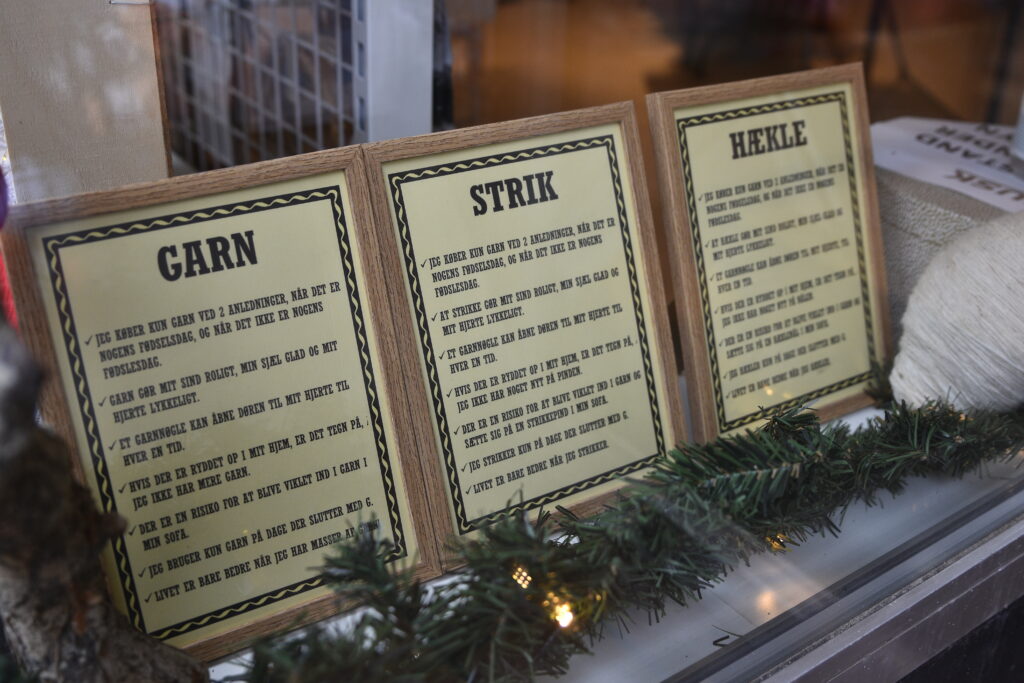 GARN
✓ JEG KØBER KUN GARN VED 2 ANLEDNINGER, NÅR DET ER
NOGENS FØDSELSDAG, OG NÅR DET IKKE ER NOGENS
FØDSLESDAG.
✓ GARN GØR MIT SIND ROLIGT, MIN SJÆL GLAD OG MIT
HJERTE LYKKELIGT.
✓ ET GARNNØGLE KAN ÅBNE DØREN TIL MIT HJERTE TIL
HVER EN TID.
✓ HVIS DER ER RYDDET OP I MIT HJEM, ER DET TEGN PÅ,
JEG IKKE HAR MERE GARN.
✓ DER ER EN RISIKO FOR AT BLIVE VIKLET IND I GARN I
MIN SOFA.
✓ JEG BRUGER KUN GARN PÅ DAGE DER SLUTTER MED G.
✓ LIVET ER BARE BEDRE NÅR JEG HAR MASSER AF
STRIK
✓ JEG KØBER KUN GARN VED 2 ANLEDNINGER, NÅR DET ER
NOGENS FØDSELSDAG, OG NÅR DET IKKE ER NOGENS
FØDSLESDAG.
✓ AT STRIKKE GØR MIT SIND ROLIGT, MIN SJÆL GLAD OG
MIT HJERTE LYKKELIGT.
✓ ET GARNNØGLE KAN ÅBNE DØREN TIL MIT HJERTE TIL
HVER EN TID.
✓ HVIS DER ER RYDDET OP I MIT HJEM, ER DET TEGN PÅ,
JEG IKKE HAR NOGET NYT PÅ PINDEN.
✓ DER ER EN RISIKO FOR AT BLIVE VIKLET IND I GARN OG
SÆTTE SIG PÅ EN STRIKKEPIND I MIN SOFA.
✓ JEG STRIKKER KUN PÅ DAGE DER SLUTTER MED G.
✓ LIVET ER BARE BEDRE NÅR JEG STRIKKER.
HÆKLE
✓ JEG KØBER KUN GARN VED 2 ANLEDNINGER, NÅR DET ER
NOGENS FØDSELSDAG, OG NÅR DET IKKE ER NOGENS
FØDSLESDAG.
✓ AT HÆKLE GØR MIT SIND ROLIGT, MIN SJÆL GLAD OG
MIT HJERTE LYKKELIGT.
✓ ET GARNNØGLE KAN ÅBNE DØREN TIL MIT HJERTE TIL
HVER EN TID.
✓ HVIS DER ER RYDDET OP I MIT HJEM, ER DET TEGN PÅ,
JEG IKKE HAR NOGET NYT PÅ NÅLEN.
✓ DER ER EN RISIKO FOR AT BLIVE VIKLET IND I GARN OG
SÆTTE SIG PÅ EN HÆKLENÅL I MIN SOFA.
✓ JEG HÆKLE KUN PÅ DAGE DER SLUTTER MED G
✓ LIVET ER BARE BEDRE NÅR JEG HÆKLER.